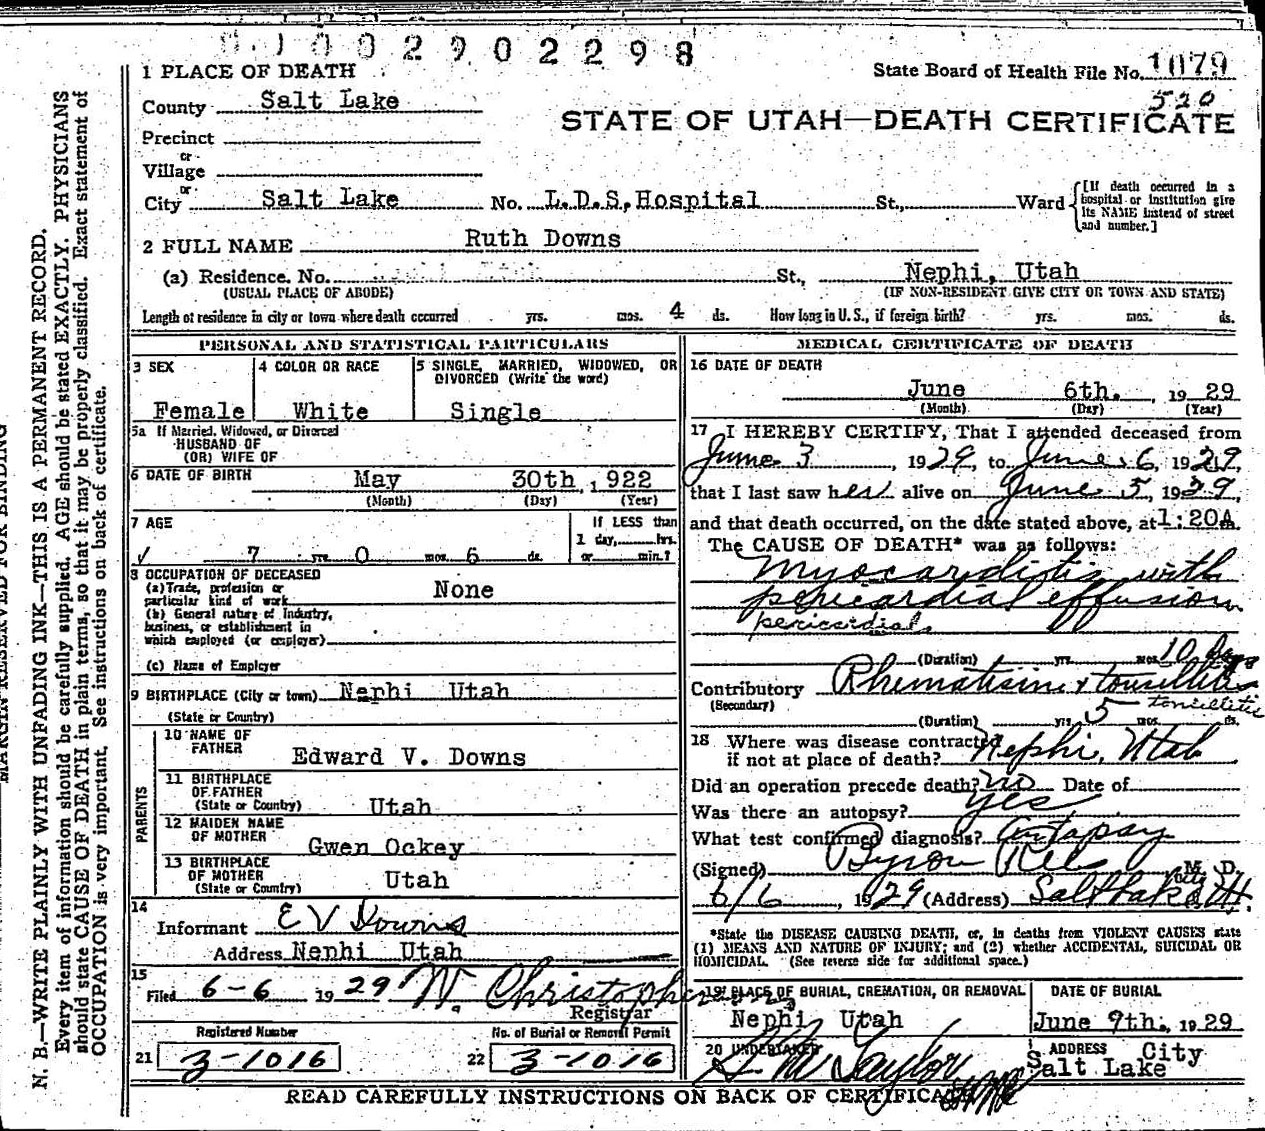 0.1002902298
State Board of Health File No. 1079
520
1 PLACE OF DEATH
County Salt Lake
STATE OF UTAH—DEATH CERTIFICATE
Precinct
or
Village
or
City Salt Lake No. L.D.S, Hospital St., Ward {[If death occurred in a hospital or institution give its NAME instead of street and number.]
2 FULL NAME Ruth Downs
(a) Residence. No. St., Nephi, Utah
(USUAL PLACE OF ABODE) (IF NON-RESIDENT GIVE CITY OR TOWN AND STATE)
Length of residence in city or town where death occurred yrs. mos. 4 ds. How long in U. S., if foreign birth? yrs. mos. ds.
PERSONAL AND STATISTICAL PARTICULARS
3 SEX
Female
4 COLOR OR RACE
White
5 SINGLE, MARRIED, WIDOWED, OR
DIVORCED (Write the word)
Single
5a If Married, Widowed, or Divorced
HUSBAND OF
(OR) WIFE OF
6 DATE OF BIRTH May 30th ,1922
(Month) (Day) (Year)
7 AGE
If LESS than
1 day, hrs.
or min.?
7 yrs. 0 mos. 6 ds.
8 OCCUPATION OF DECEASED
(a) Trade, profession or
particular kind of work None
(b) General nature of Industry,
business, or establishment in
which employed (or employer)
(c) Name of Employer
9 BIRTHPLACE (City or town) Nephi Utah
(State or Country)
PARENTS
10 NAME OF
FATHER Edward V. Downs
11 BIRTHPLACE
OF FATHER
(State or Country) Utah
12 MAIDEN NAME
OF MOTHER Gwen Ockey
13 BIRTHPLACE
OF MOTHER
(State or Country) Utah
14
Informant E V Downs
Address Nephi Utah
15
Filed 6-6 1929 W. Christopherson
Registrar
Registered Number
21 3-1016
No. of Burial or Removal Permit
22 3-1016
MEDICAL CERTIFICATE OF DEATH
16 DATE OF DEATH
June 6th. , 1929
(Month) (Day) (Year)
17 I HEREBY CERTIFY, That I attended deceased from
June 3, 1929, to June 6, 1929,
that I last saw her alive on June 5, 1929,
and that death occurred, on the date stated above, at 1:20A.
The CAUSE OF DEATH* was as follows:
Myocarditis with
pericardial effusion
pericardial
(Duration) yrs. mos. 10 days
Contributory Rhematism & tonsillitis
(Secondary) tonsillitis
(Duration) yrs. 5 mos. ds.
18 Where was disease contracted
if not at place of death? Nephi, Utah
Did an operation precede death? no Date of
Was there an autopsy? yes
What test confirmed diagnosis? Autopsy
(Signed) Byron Rees M. D.
6/6, 1929 (Address) Salt Lake City Ut.
*State the DISEASE CAUSING DEATH, or, in deaths from VIOLENT CAUSES state
(1) MEANS AND NATURE OF INJURY; and (2) whether ACCIDENTAL, SUICIDAL OR
HOMICIDAL. (See reverse side for additional space.)
19 PLACE OF BURIAL, CREMATION, OR REMOVAL
Nephi Utah
DATE OF BURIAL
June 9th., 1929
20 UNDERTAKER
S. M. Taylor
ADDRESS City
Salt Lake
READ CAREFULLY INSTRUCTIONS ON BACK OF CERTIFICATE
MARGIN RESERVED FOR BINDING
N. B.—WRITE PLAINLY WITH UNFADING INK—THIS IS A PERMANENT RECORD.
Every item of information should be carefully supplied. AGE should be stated EXACTLY. PHYSICIANS
should state CAUSE OF DEATH in plain terms, so that it may be properly classified. Exact statement of
OCCUPATION is very important. See instructions on back of certificate.